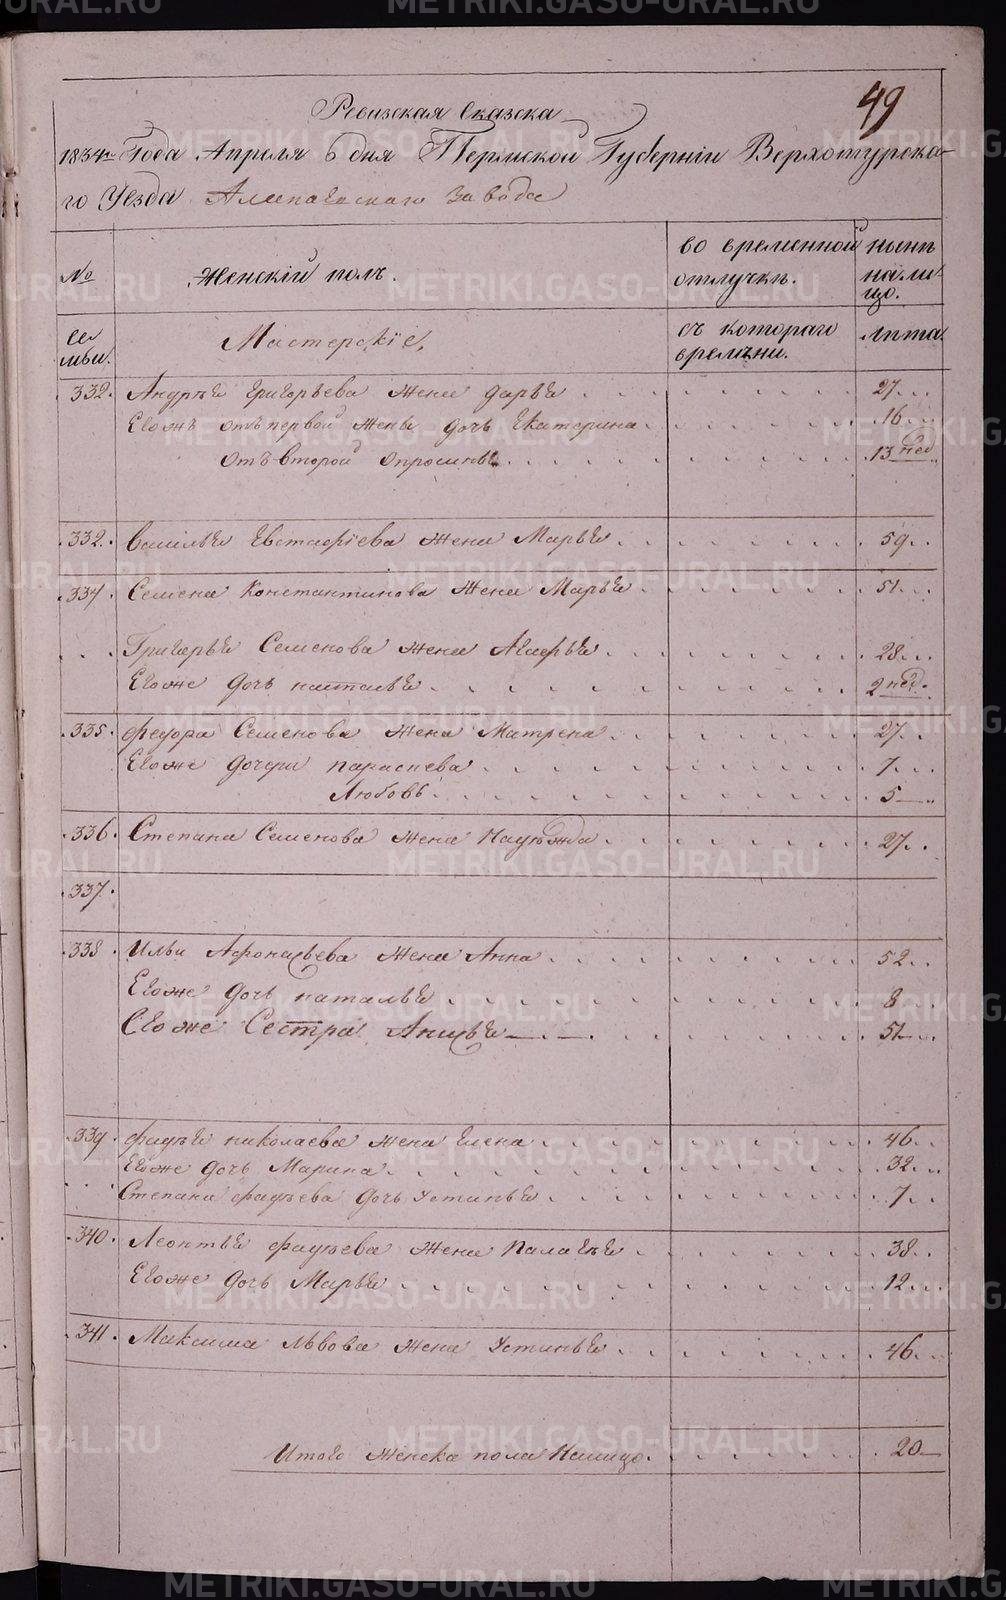 49
Ревизская Сказка
1834го Года Апреля 6 дня Пермской Губерніи Верхотурска-
го Уезда Алапаевскаго завода
№ Женскій полъ. во временной отлучкѣ. нынѣ на лицо.
семьи. Мастерскіе. съ котораго времѣни. лѣта.
332. Андрѣя Григорьева жена дарья 27
Егожъ отъ первой жены дочь Екатерина 16
отъ второй Опросинья 13 нед
332. Василья Евстафіева жена Марья 59
334. Семена Константинова жена Марья 51
Григорья Семенова жена Агафья 28
Егоже дочь наталья 2 нед.
335. федора Семенова жена Матрена 27
Егоже дочери параскева 7
Любовь 5
336. Степана Семенова жена Надѣжда 27
337.
338. Ильи Афонасьева жена Анна 52
Егоже дочь наталья 8
Егоже Сестра Анисья 51
339. фадѣя николаева жена Елена 46
Егоже дочь Марина 32
Степана фадѣева дочь устинья 7
340. Леонтья фадѣева жена Палагѣя 38
Егоже дочь Марья 12
341. Максима Львова жена Устинья 46
Итого женска пола Налицо. 20
METRIKI.GASO-URAL.RU